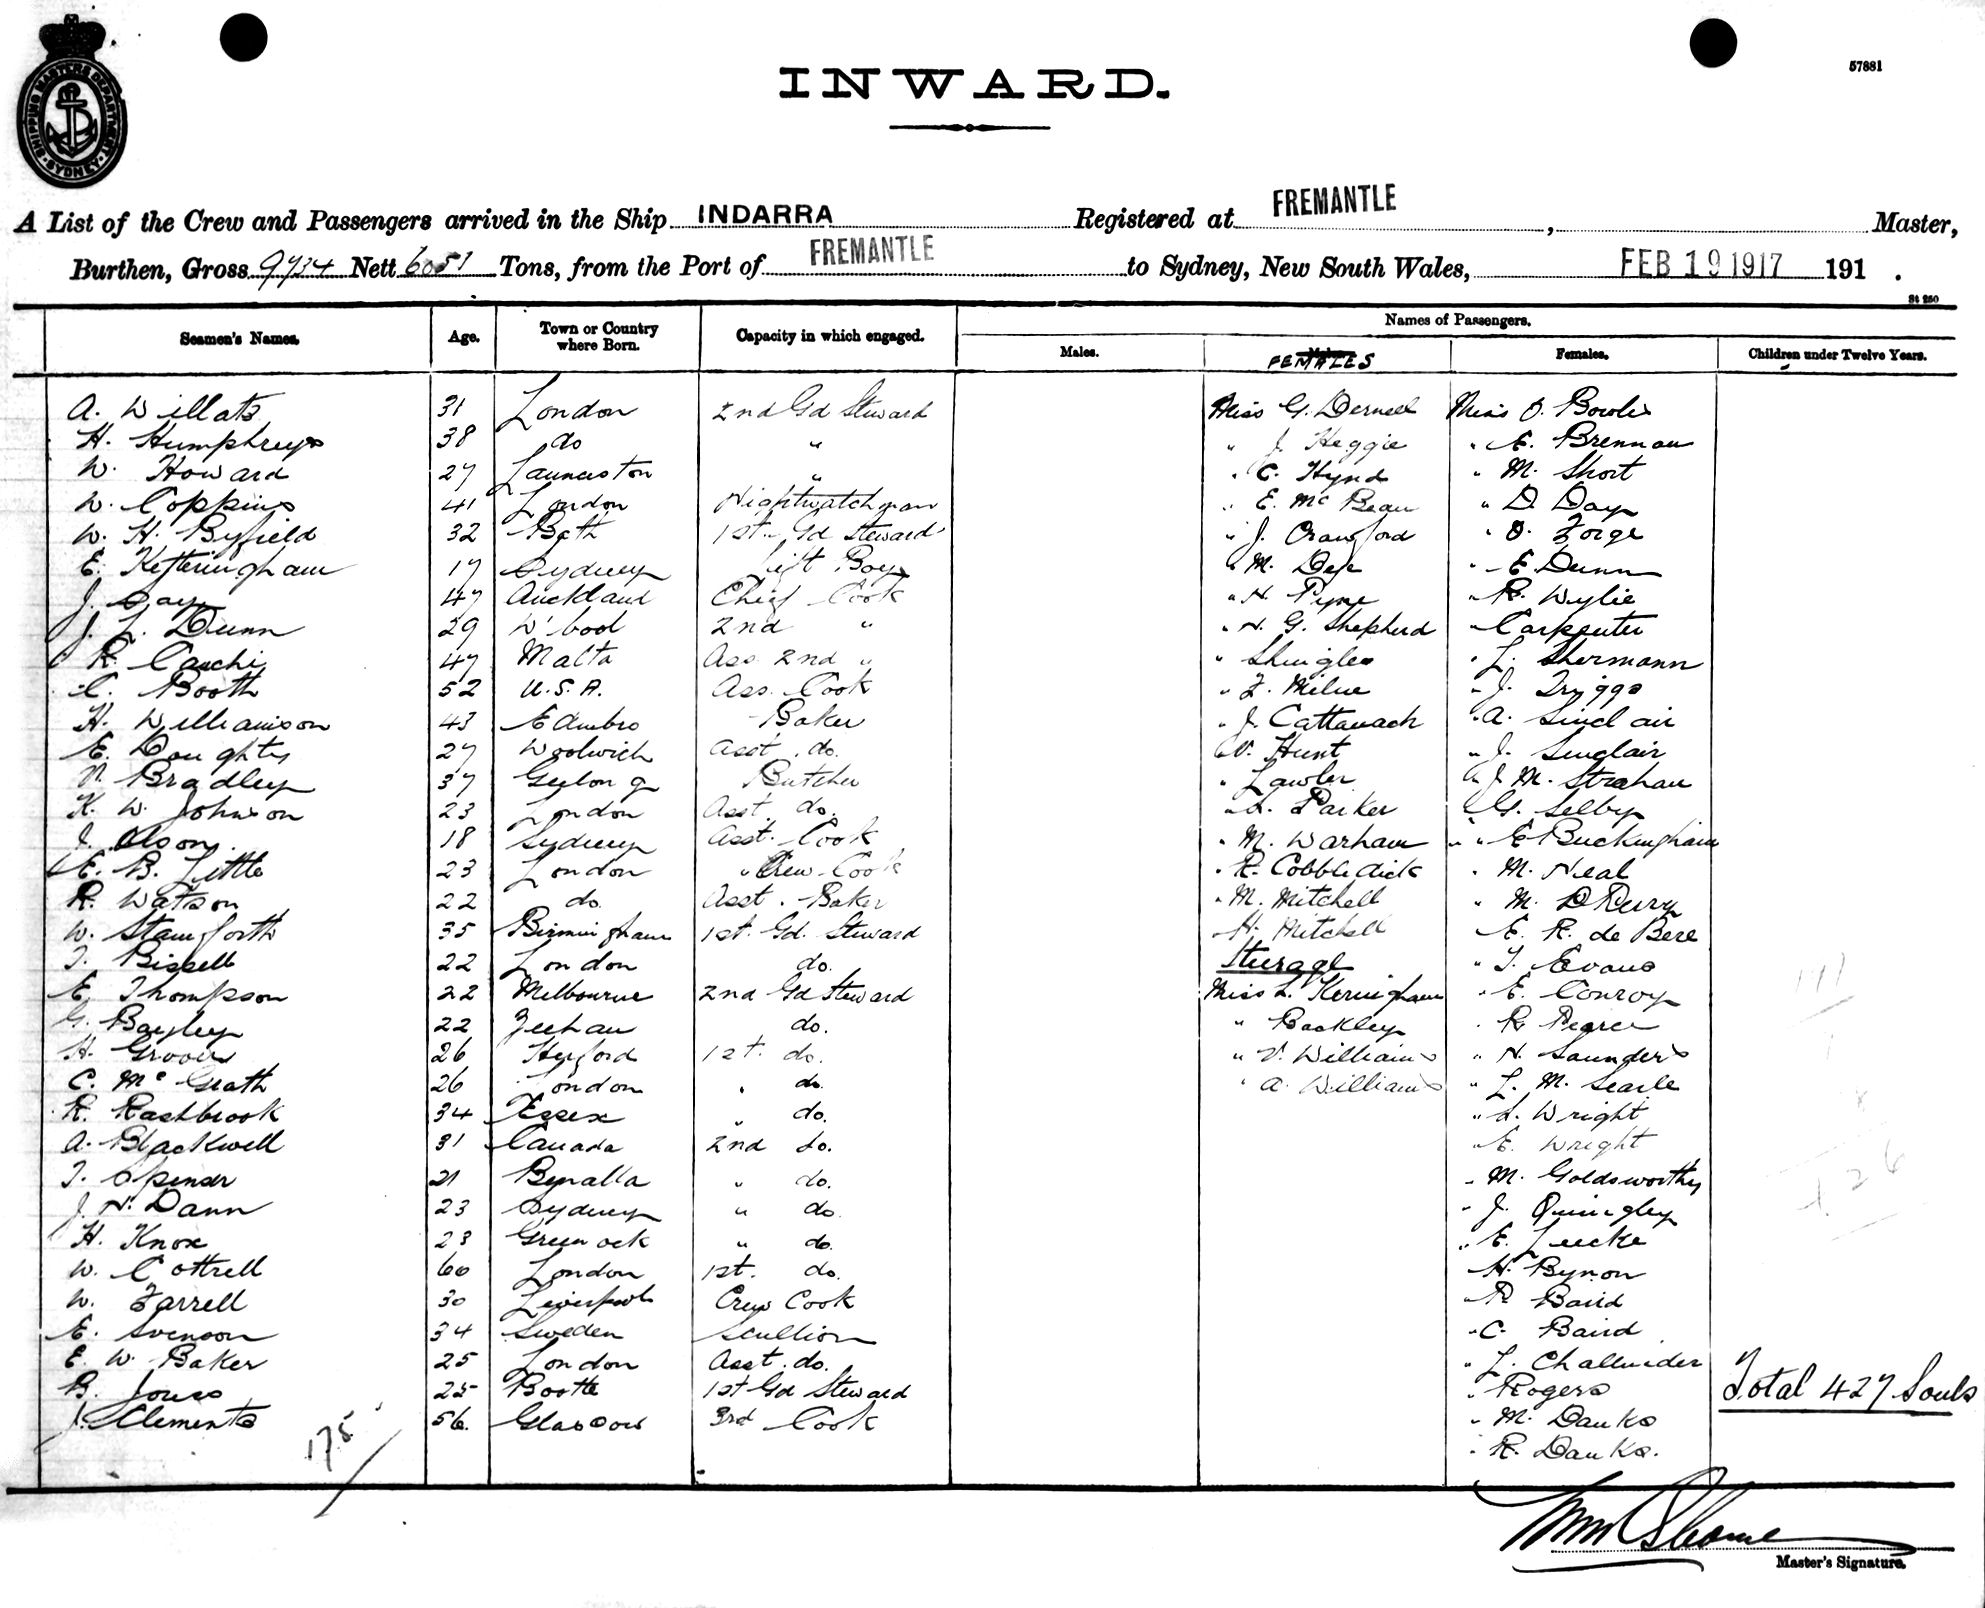 57881
SHIPPING MASTERS DEPARTMENT
SYDNEY
INWARD.
A List of the Crew and Passengers arrived in the Ship INDARRA Registered at FREMANTLE , Master,
Burthen, Gross 9734 Nett 6051 Tons, from the Port of FREMANTLE to Sydney, New South Wales, FEB 19 1917 191 .
St 250
Seamen's Names. Age. Town or Country where Born. Capacity in which engaged. Names of Passengers.
Males. FEMALES Females. Children under Twelve Years.
A. Willats 31 London 2nd Gd Steward Miss G. Dernell Miss O. Bowles
H. Humphreys 38 do " " J. Heggie " E. Brennan
W. Howard 27 Launceston " " C. Hynd " M. Short
W. Coppins 41 London Nightwatchman " E. Mc Bean " D. Day
W. H. Byfield 32 Bath 1st Gd Steward " J. Crawford " O. Forge
E. Ketteringham 17 Sydney Lift Boy " M. Dee " E. Dunn
J. Gay 47 Auckland Chief Cook " H. Pyne " R. Wylie
J. L. Dunn 29 W'bool 2nd " " N. G. Shepherd " Carpenter
R. Cauchi 47 Malta Ass 2nd " " Shingles " L. Shermann
C. Booth 52 U.S.A. Ass. Cook " F. Milne " J. Triggs
H. Williamson 43 Edinbro Baker " J. Cattanach " A. Sinclair
E. Doughty 27 Woolwich Asst. do. " V. Hunt " J. Sinclair
V. Bradley 37 Geelong Butcher " Lawler " J. M. Strahan
K. W. Johnson 23 London Asst. do. " L. Parker " G. Selby
J. Olson 18 Sydney Asst. Cook " M. Warham " E Buckingham
E. B. Little 23 London " Crew Cook " R. Cobbledick " M. Neal
R. Watson 22 do. Asst. Baker " M. Mitchell " M. DRury
W. Stainforth 35 Birmingham 1st. Gd. Steward " H. Mitchell " E. R. de Bere
T. Bissell 22 London do. Steerage " T. Evans
E. Thompson 22 Melbourne 2nd Gd Steward Miss L. Kerningham " E. Conroy
G. Bayley 22 Zeehan do. " Backley " R. Pearce
H. Groover 26 Hereford 1st. do. " V. Williams " N. Saunders
C. Mc Grath 26 London " do. " A. Williams " L. M. Searle
R. Rashbrook 34 Essex " do. " L. Wright
A. Blackwell 31 Canada 2nd do. " E. Wright
T. Spencer 21 Benalla " do. " M. Goldsworthy
J. H. Dann 23 Sydney " do. " J. Quingley
H. Knox 23 Greenock " do. " E. Luecke
W. Cottrell 60 London 1st. do. " H. Bynon
W. Farrell 30 Liverpool Crew Cook " R Baird
E. Svenson 34 Sweden Scullion " C. Baird
E. W. Baker 25 London Asst. do. " L. Challinder
B. Jones 25 Bootle 1st Gd Steward " Rogers Total 427 Souls
J. Clements 56. Glascow 3rd Cook " M. Danks
175 " R. Danks.
Master's Signature.